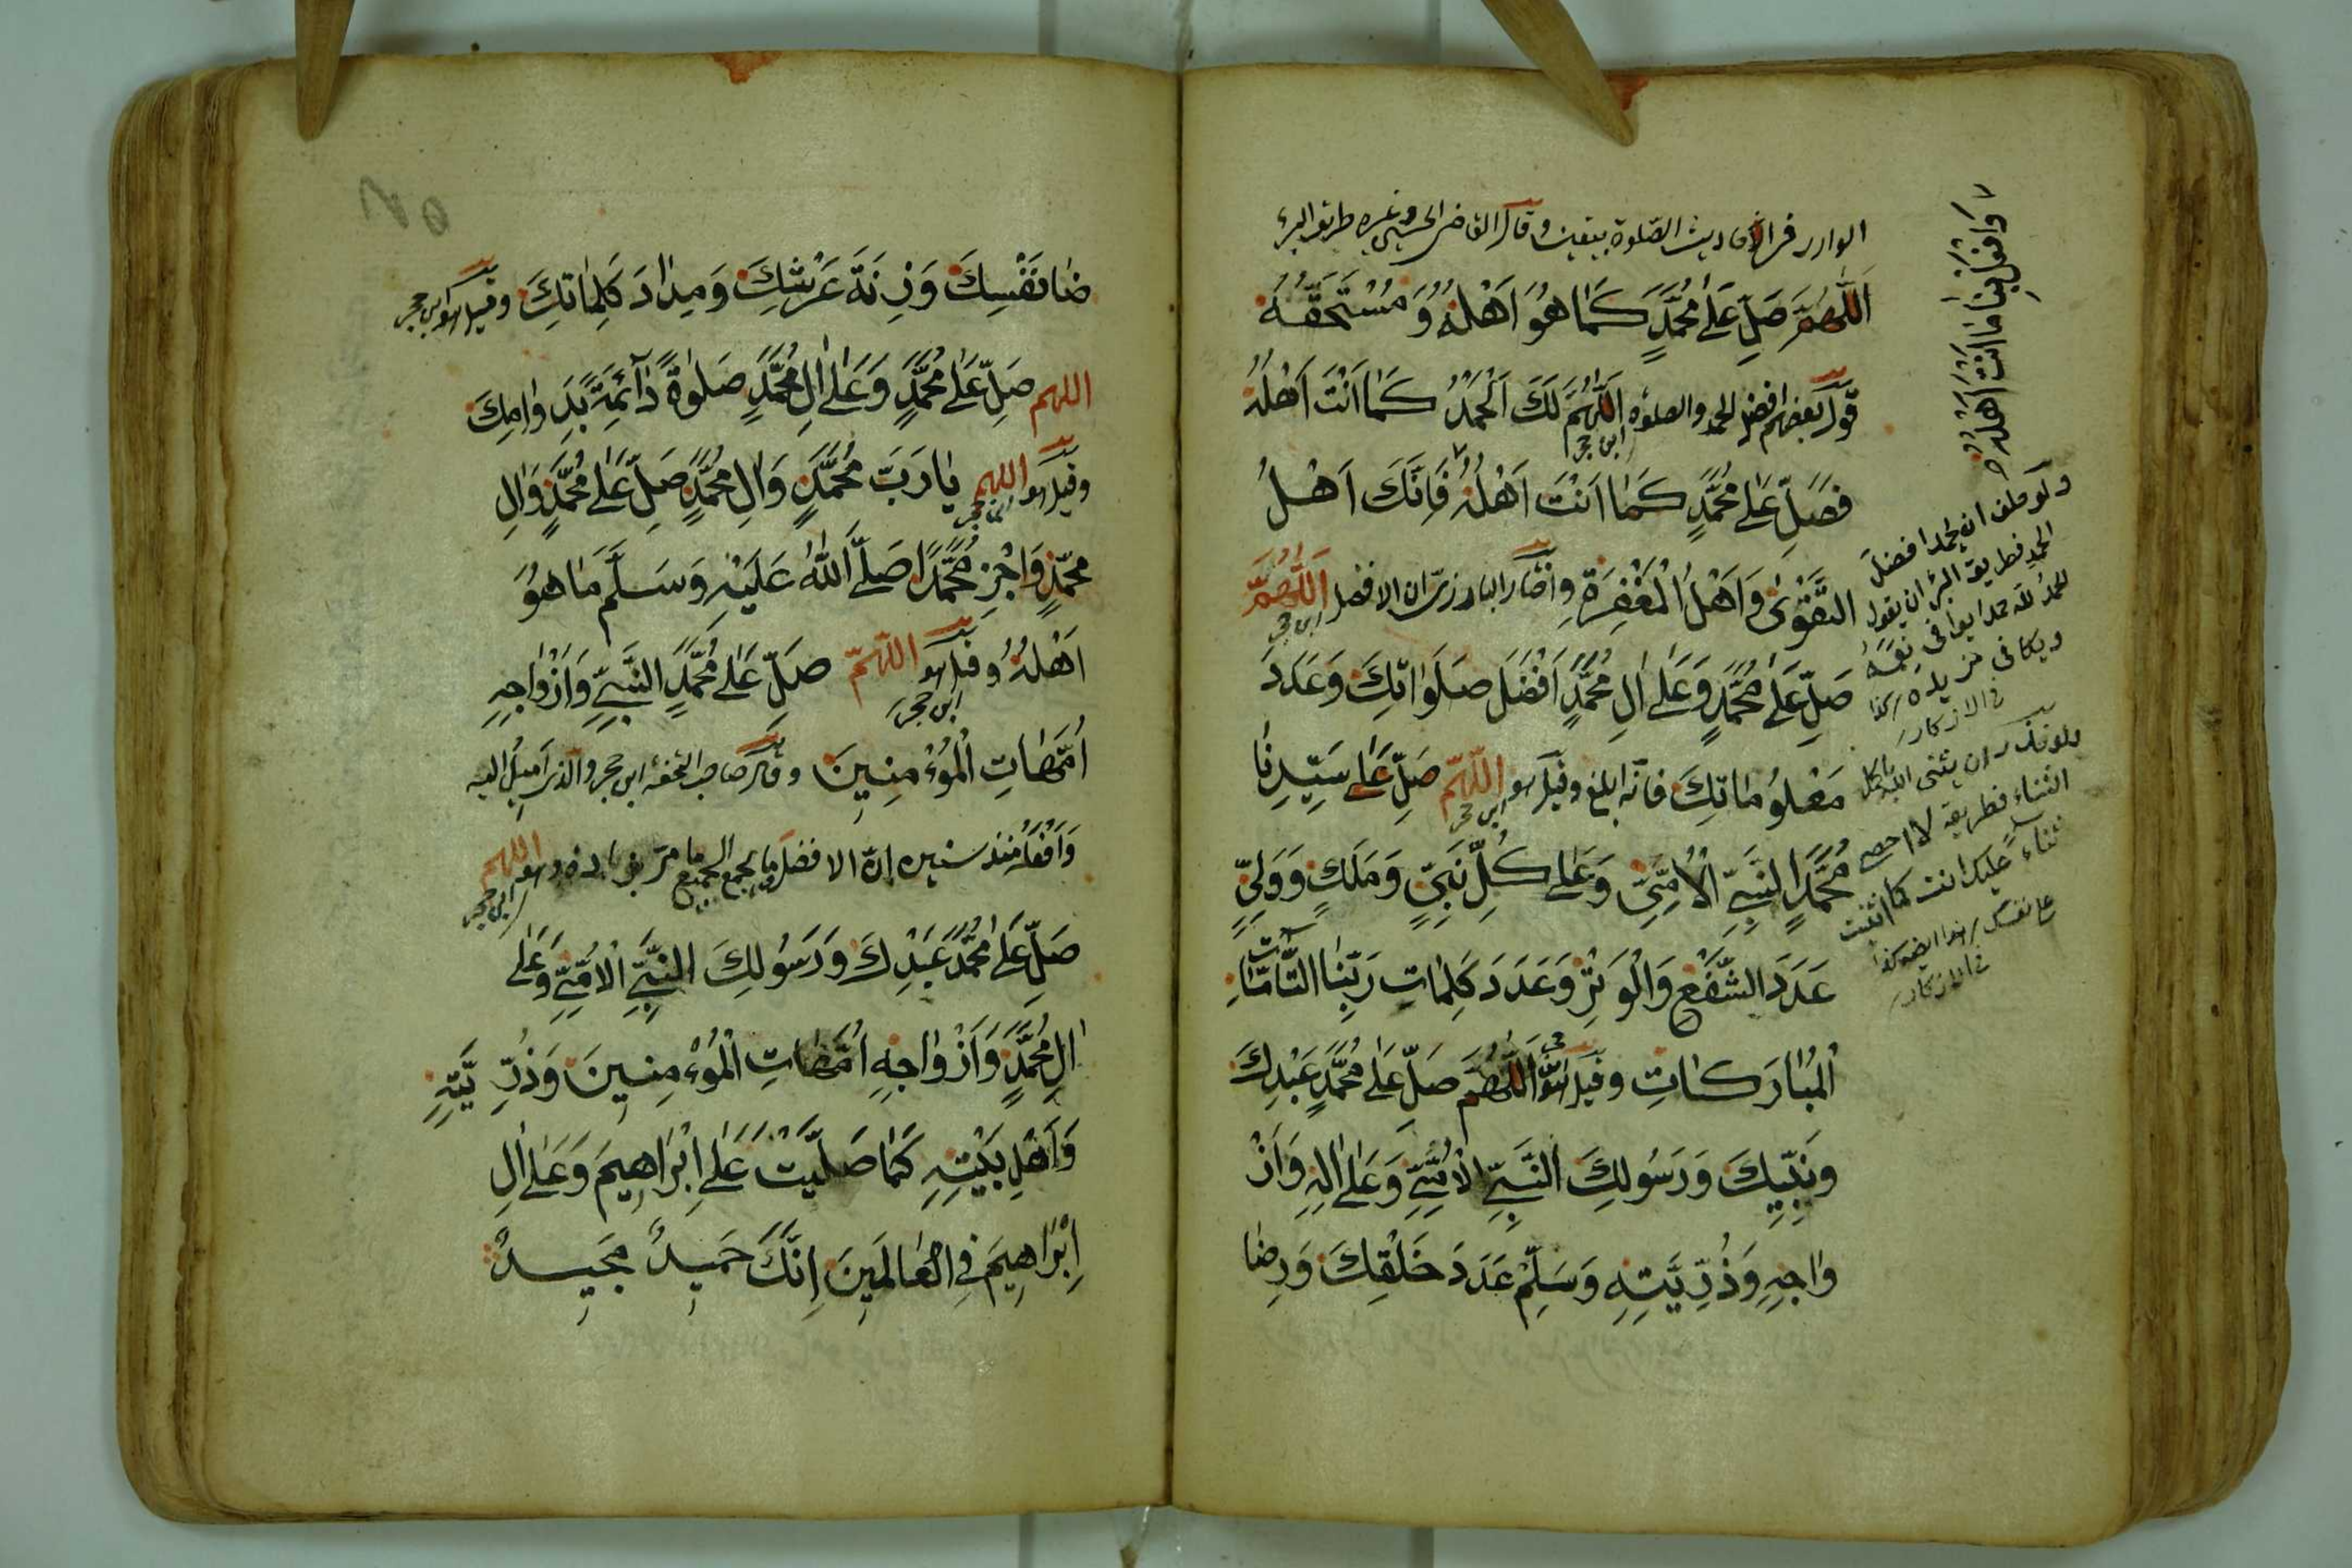 الوارد في الأحاديث الصلوة بيقين وقال القاضي الحسين وغيره طريق البر
اَللّٰهُمَّ صَلِّ عَلٰى مُحَمَّدٍ كَمَا هُوَ اَهْلُهُ وَمُسْتَحَقُّهُ
قول بعضهم افضل الحمد والصلوة اَللّٰهُمَّ لَكَ الْحَمْدُ كَمَا اَنْتَ اَهْلُهُ
ابن حجر
فَصَلِّ عَلٰى مُحَمَّدٍ كَمَا اَنْتَ اَهْلُهُ فَاِنَّكَ اَهْلُ
التَّقْوٰى وَاَهْلُ الْمَغْفِرَةِ واختار البارزي ان الافضل اَللّٰهُمَّ
ابن حجر
صَلِّ عَلٰى مُحَمَّدٍ وَعَلٰى اٰلِ مُحَمَّدٍ اَفْضَلَ صَلَوَاتِكَ وَعَدَدَ
مَعْلُومَاتِكَ فانه ابلغ وقيل هو اَللّٰهُمَّ صَلِّ عَلٰى سَيِّدِنَا
ابن حجر
مُحَمَّدٍ النَّبِيِّ الْاُمِّيِّ وَعَلٰى كُلِّ نَبِيٍّ وَمَلَكٍ وَوَلِيٍّ
عَدَدَ الشَّفْعِ وَالْوَتْرِ وَعَدَدَ كَلِمَاتِ رَبِّنَا التَّامَّاتِ
الْمُبَارَكَاتِ وقيل هو اَللّٰهُمَّ صَلِّ عَلٰى مُحَمَّدٍ عَبْدِكَ
وَنَبِيِّكَ وَرَسُولِكَ النَّبِيِّ الْاُمِّيِّ وَعَلٰى اٰلِهِ وَاَزْ
وَاجِهِ وَذُرِّيَّتِهِ وَسَلِّمْ عَدَدَ خَلْقِكَ وَرِضَا
وَافْعَلْ بِنَا مَا اَنْتَ اَهْلُهُ
ولو حلف ان يحمد افضل
الحمد فطريق البر ان يقول
الحمد لله حمدا يوافي نعمه
ويكافي مزيده كذا
في الاذكار
ولو نذر ان يثني الله باكل
الثناء فطريقه لا احصي
ثناء عليك انت كما اثنيت
على نفسك هذا ايضا كذا
في الاذكار
ضَا نَفْسِكَ وَزِنَةَ عَرْشِكَ وَمِدَادَ كَلِمَاتِكَ وقيل هو ابن حجر
اللهم صَلِّ عَلٰى مُحَمَّدٍ وَعَلٰى اٰلِ مُحَمَّدٍ صَلٰوةً دَائِمَةً بِدَوَامِكَ
وقيل هو اللهم يَا رَبَّ مُحَمَّدٍ وَاٰلِ مُحَمَّدٍ صَلِّ عَلٰى مُحَمَّدٍ وَاٰلِ
ابن حجر
مُحَمَّدٍ وَاجْزِ مُحَمَّدًا صَلَّى اللّٰهُ عَلَيْهِ وَسَلَّمَ مَا هُوَ
اَهْلُهُ وقيل هو اللهم صَلِّ عَلٰى مُحَمَّدٍ النَّبِيِّ وَاَزْوَاجِهِ
ابن حجر
اُمَّهَاتِ الْمُؤْمِنِينَ وقال صاحب التحفة ابن حجر والذي اميل اليه
وَاَفْعَلُهُ منذ سنين ان الافضل ما يجمع الجميع ما مر بزيادة وهو اللهم
ابن حجر
صَلِّ عَلٰى مُحَمَّدٍ عَبْدِكَ وَرَسُولِكَ النَّبِيِّ الْاُمِّيِّ وَعَلٰى
اٰلِ مُحَمَّدٍ وَاَزْوَاجِهِ اُمَّهَاتِ الْمُؤْمِنِينَ وَذُرِّيَّتِهِ
وَاَهْلِ بَيْتِهِ كَمَا صَلَّيْتَ عَلٰى اِبْرَاهِيمَ وَعَلٰى اٰلِ
اِبْرَاهِيمَ فِي الْعَالَمِينَ اِنَّكَ حَمِيدٌ مَجِيدٌ